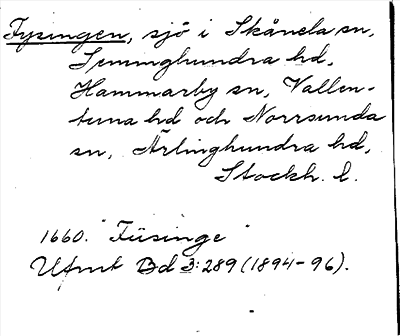 Fysingen, sjö i Skånela sn,
Seminghundra hd,
Hammarby sn, Vallen-
tuna hd och Norrsunda
sn, Ärlinghundra hd,
Stockh. l.
1660. "Füsinge"
Ufmt Bd 3:289 (1894-96).